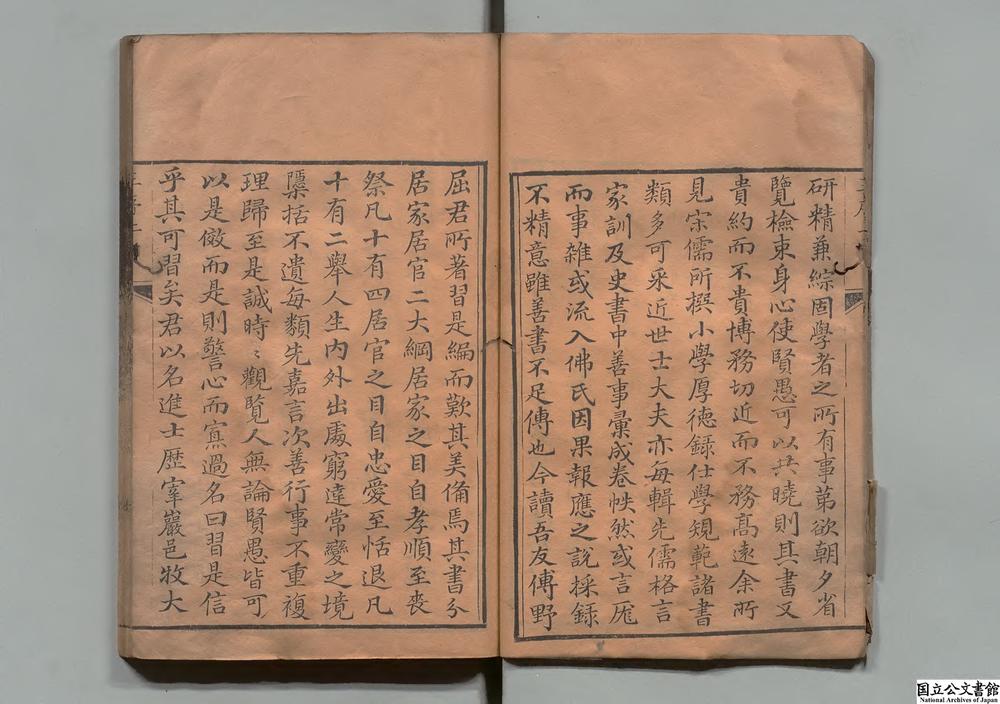 研精兼綜固學者之所有事第欲朝夕省
覽檢束身心使賢愚可以共曉則其書又
貴約而不貴博務切近而不務高遠余所
見宋儒所撰小學厚德録仕學規範諸書
類多可采近世士大夫亦每輯先儒格言
家訓及史書中善事彙成卷帙然或言厖
而事雑或流入佛氏因果報應之說採録
不精意雖善書不足傳也今讀吾友傅野
屈君所著習是編而歎其美備焉其書分
居家居官二大綱居家之目自孝順至喪
祭凡十有四居官之目自忠愛至恬退凡
十有二舉人生内外出處窮達常變之境
檃括不遺每類先嘉言次善行事不重複
理歸至是誠時〻觀覽人無論賢愚皆可
以是儆而是則警心而寡過名曰習是信
乎其可習矣君以名進士歷宰巖邑牧大
国立公文書館
National Archives of Japan